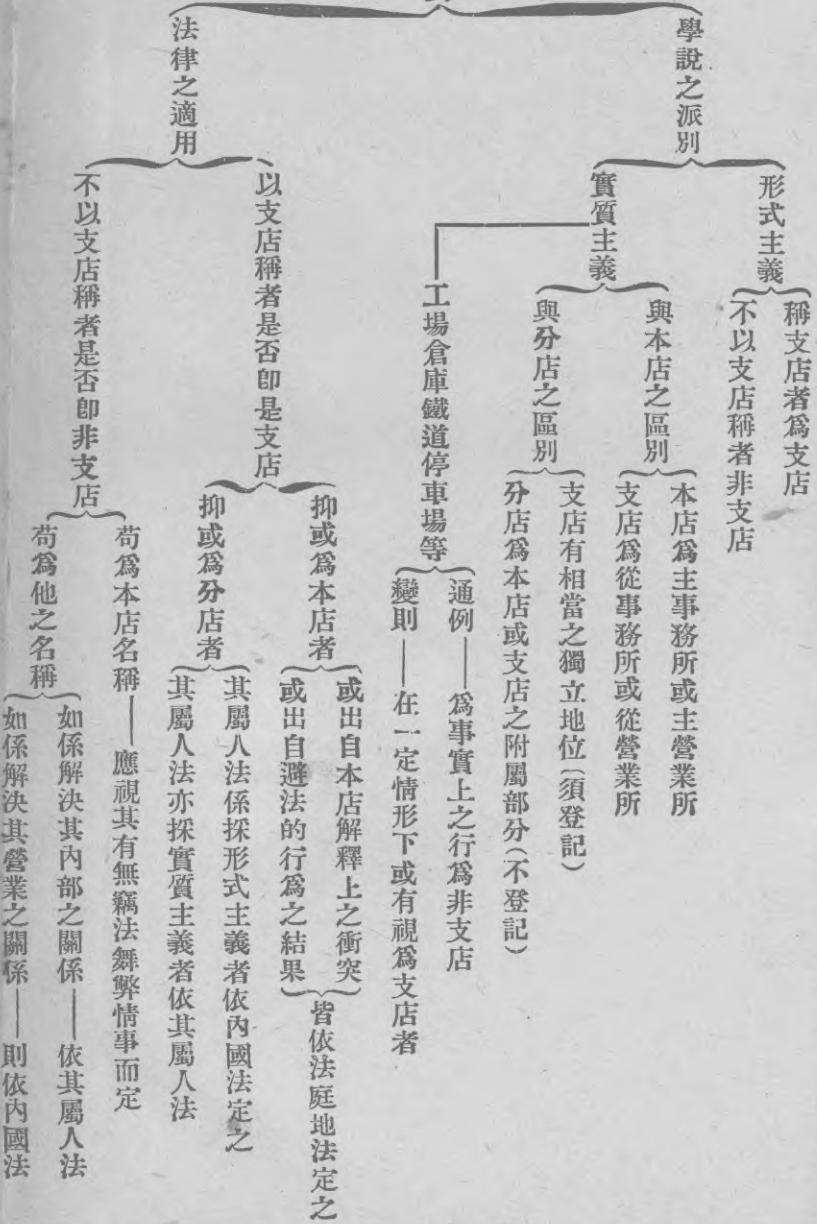 學說之派別
形式主義
稱支店者爲支店
不以支店稱者非支店
實質主義
與本店之區別
本店爲主事務所或主營業所
支店爲從事務所或從營業所
與分店之區別
支店有相當之獨立地位(須登記)
分店爲本店或支店之附屬部分(不登記)
工場倉庫鐵道停車場等
通例——爲事實上之行爲非支店
變則——在一定情形下或有視爲支店者
法律之適用
以支店稱者是否卽是支店
抑或爲本店者
或出自本店解釋上之衝突
或出自避法的行爲之結果
皆依法庭地法定之
抑或爲分店者
其屬人法係採形式主義者依內國法定之
其屬人法亦採實質主義者依其屬人法
不以支店稱者是否卽非支店
苟爲本店名稱——應視其有無竊法舞弊情事而定
苟爲他之名稱
如係解決其內部之關係——依其屬人法
如係解決其營業之關係——則依內國法